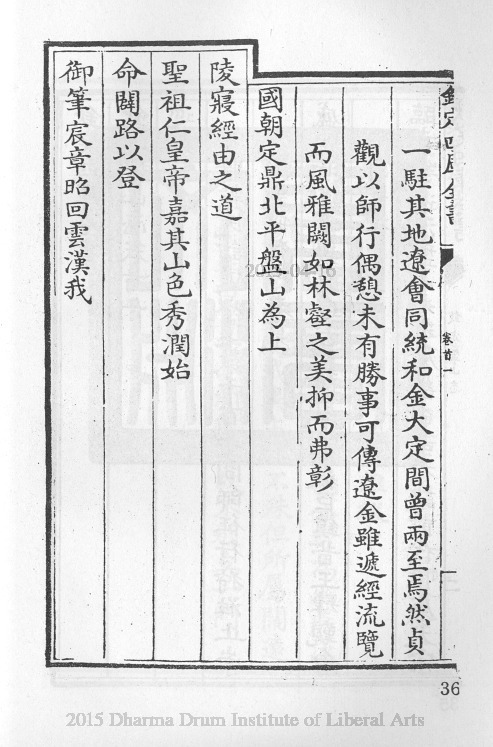 欽定四庫全書
卷首一
一駐其地遼會同統和金大定間曾兩至焉然貞
觀以師行偶憩未有勝事可傳遼金雖遞經流覽
而風雅闕如林壑之美抑而弗彰
國朝定鼎北平盤山為上
陵寢經由之道
聖祖仁皇帝嘉其山色秀潤始
命闢路以登
御筆宸章昭回雲漢我
36
2015 Dharma Drum Institute of Liberal Arts